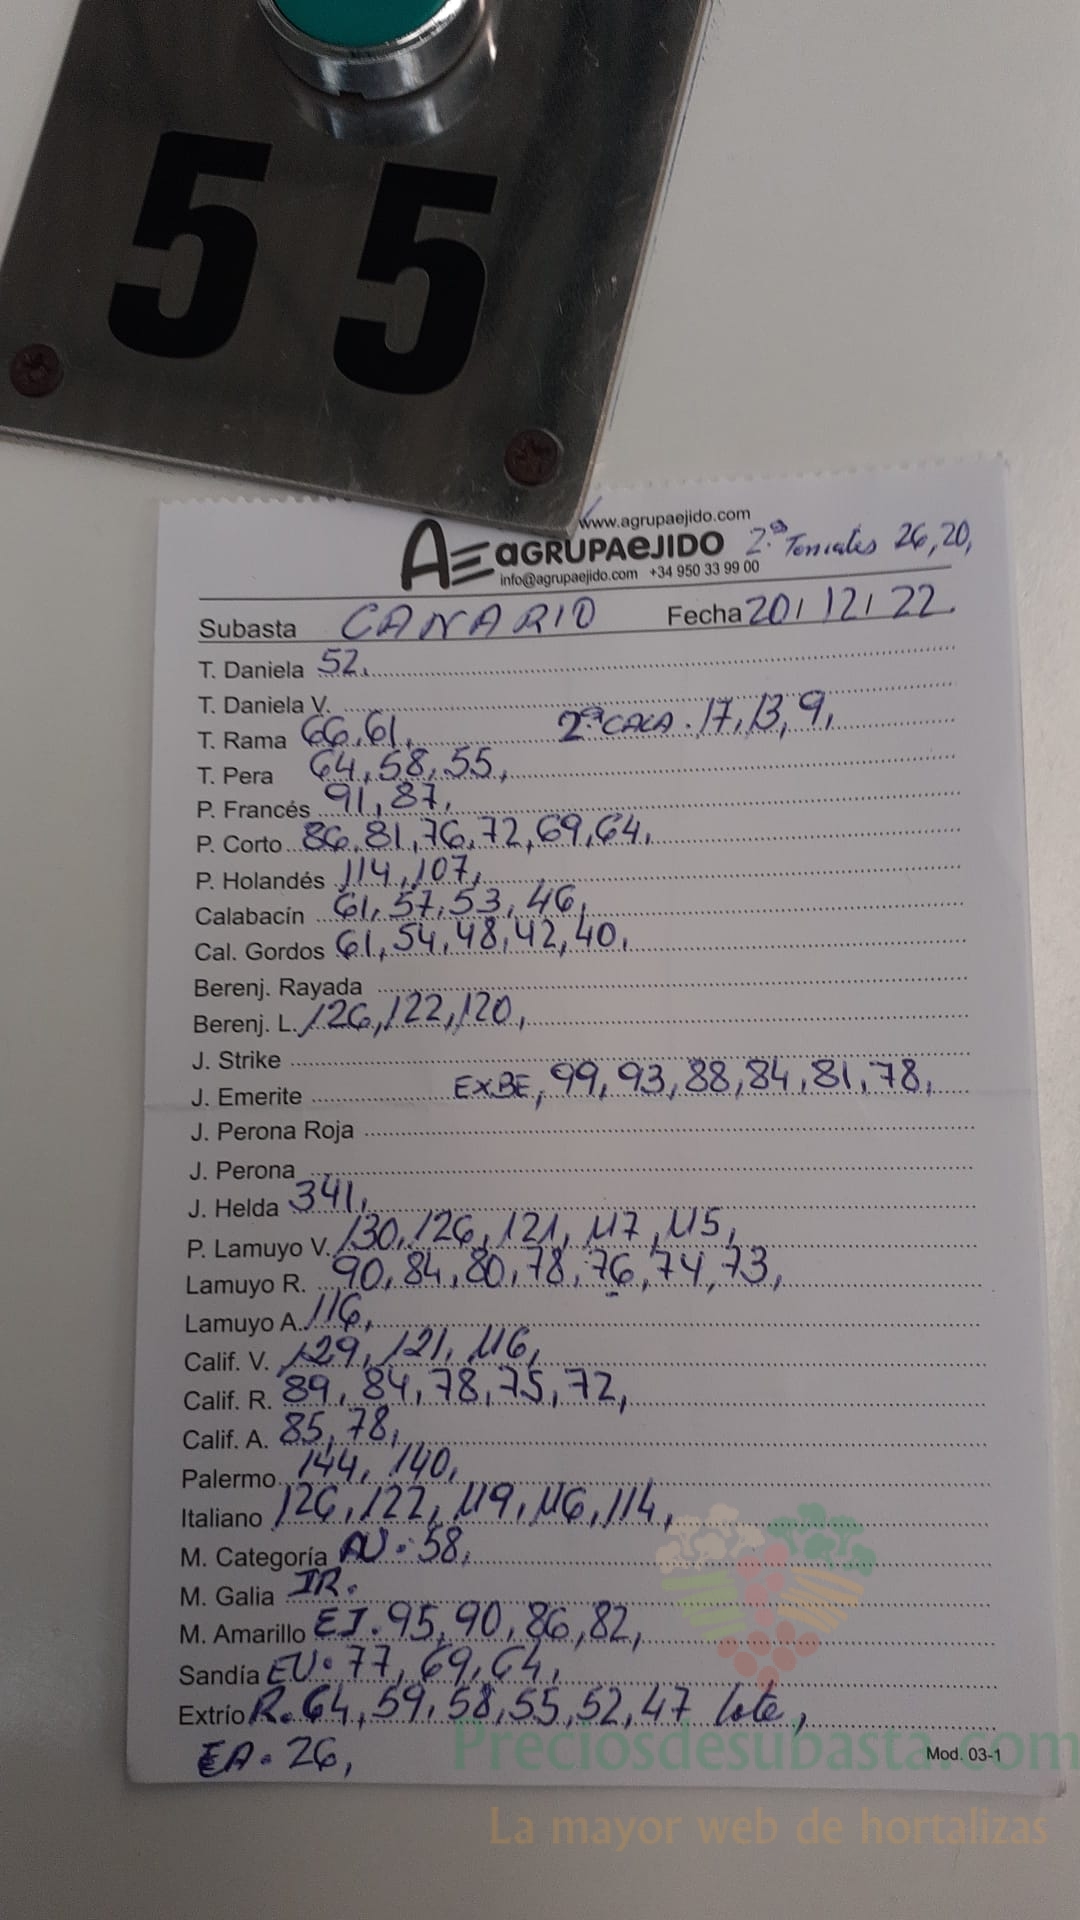 55
www.agrupaejido.com
AE aGRUPAeJIDO 2.ª Tomates 26,20,
info@agrupaejido.com +34 950 33 99 00
Subasta CANARIO Fecha 20/12/22.
T. Daniela 52,
T. Daniela V.
T. Rama 66,61, 2ªCALA. 17,13,9,
T. Pera 64,58,55,
P. Francés 91,87,
P. Corto 86,81,76,72,69,64,
P. Holandés 114,107,
Calabacín 61,57,53,46,
Cal. Gordos 61,54,48,42,40,
Berenj. Rayada
Berenj. L. 126,122,120,
J. Strike
J. Emerite EXBE, 99,93,88,84,81,78,
J. Perona Roja
J. Perona
J. Helda 341,
P. Lamuyo V. 130,126,121,117,115,
Lamuyo R. 90,84,80,78,76,74,73,
Lamuyo A. 116,
Calif. V. 129,121,116,
Calif. R. 89,84,78,75,72,
Calif. A. 85,78,
Palermo 144,140,
Italiano 126,122,119,116,114,
M. Categoría AV.58,
M. Galia IR.
M. Amarillo EI.95,90,86,82,
Sandía EV.77,69,64,
Extrío R.64,59,58,55,52,47 lote,
EA.26,
Preciosdesubasta.com
Mod. 03-1
La mayor web de hortalizas